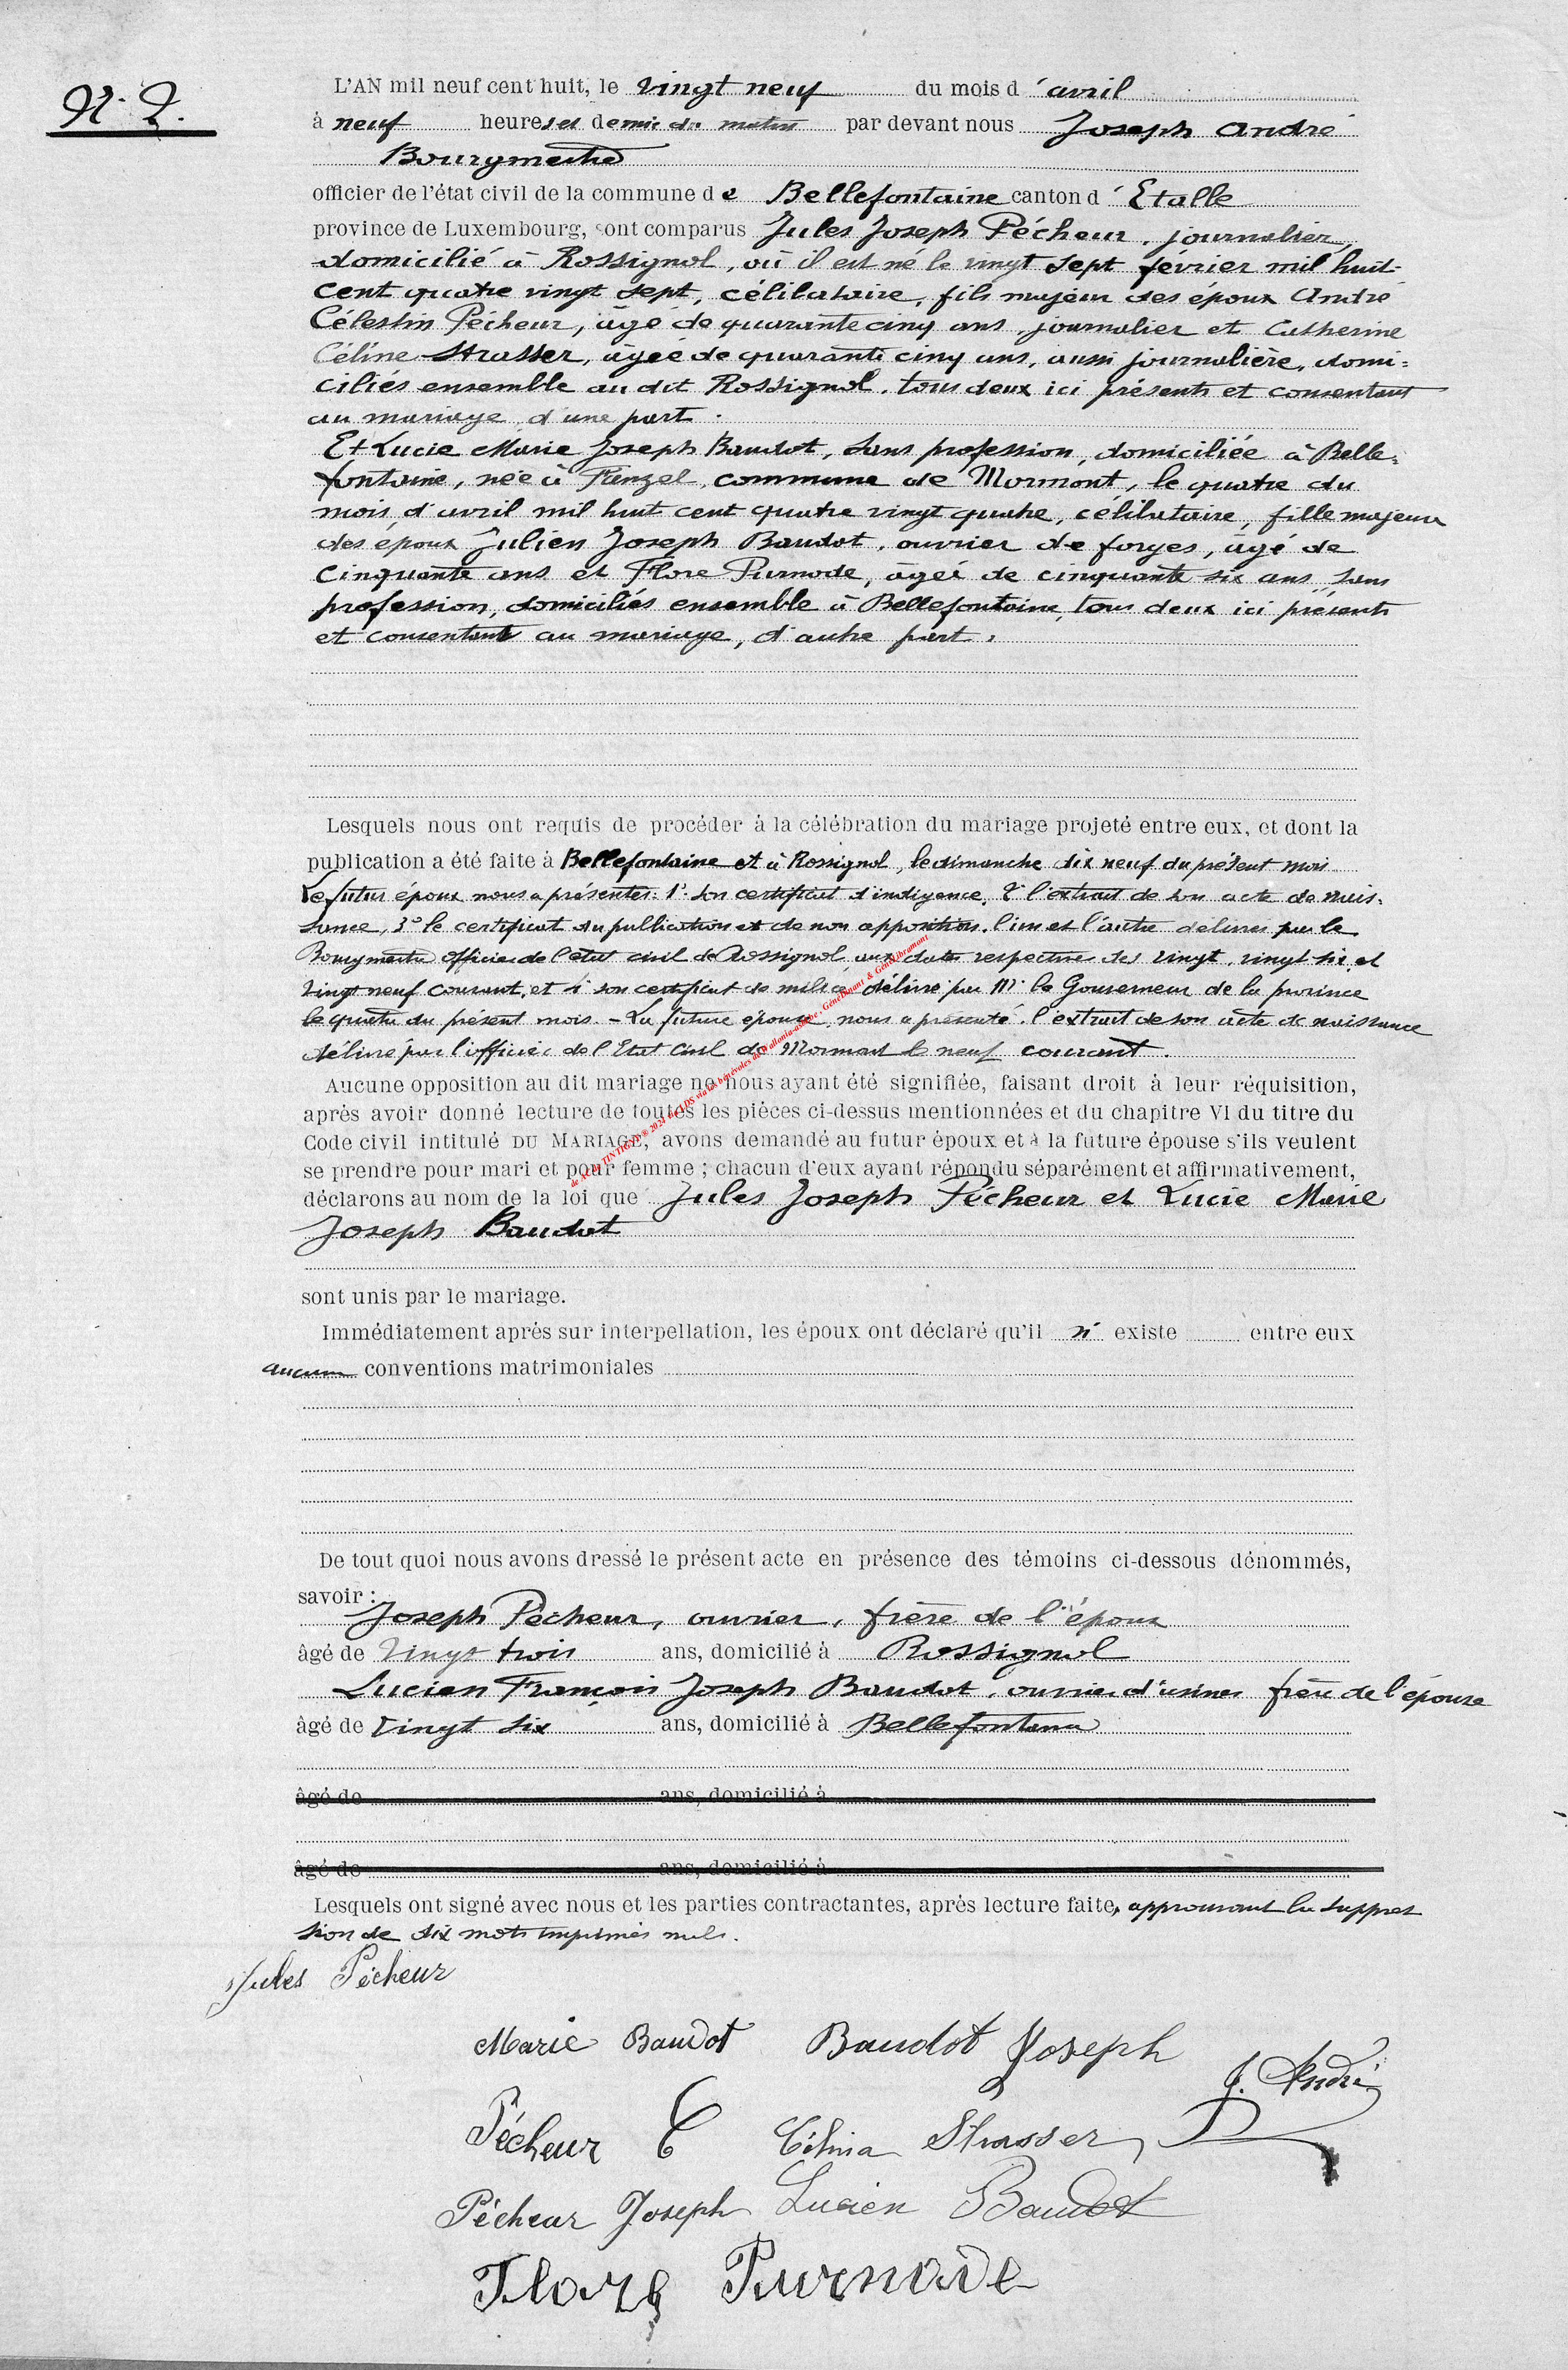 N° 2.
L'AN mil neuf cent huit, le vingt neuf du mois d'avril
à neuf heures et demie du matin par devant nous Joseph André
Bourgmestre
officier de l'état civil de la commune de Bellefontaine canton d'Etalle
province de Luxembourg, sont comparus Jules Joseph Pécheur, journalier,
domicilié à Rossignol, où il est né le vingt sept février mil huit
cent quatre vingt sept, célibataire, fils majeur des époux André
Célestin Pécheur, âgé de quarante cinq ans, journalier et Catherine
Céline Strasser, âgée de quarante cinq ans, aussi journalière, domi=
ciliés ensemble au dit Rossignol, tous deux ici présents et consentant
au mariage, d'une part.
Et Lucie Marie Joseph Baudot, sans profession, domiciliée à Belle=
fontaine, née à Fenzel, commune de Mormont, le quatre du
mois d'avril mil huit cent quatre vingt quatre, célibataire, fille majeure
des époux Julien Joseph Baudot, ouvrier de forges, âgé de
cinquante ans et Flore Purnode, âgée de cinquante six ans sans
profession, domiciliés ensemble à Bellefontaine, tous deux ici présents
et consentant au mariage, d'autre part.
Lesquels nous ont requis de procéder à la célébration du mariage projeté entre eux, et dont la
publication a été faite à Bellefontaine et à Rossignol, le dimanche dix neuf du présent mois
Le futur époux nous a présenter: 1° son certificat d'indigence, 2° l'extrait de son acte de nais=
sance, 3° le certificat de publication et de non opposition, l'un et l'autre délivrés par le
Bourgmestre officier de l'état civil de Rossignol, aux dates respectives des vingt, vingt six et
vingt neuf courant, et 4° son certificat de milice délivré par Mr le Gouverneur de la province
le quatre du présent mois. - La future épouse, nous a présenté, l'extrait de son acte de naissance
délivré par l'officier de l'Etat Civil de Mormont le neuf courant.
Aucune opposition au dit mariage ne nous ayant été signifiée, faisant droit à leur réquisition,
après avoir donné lecture de toutes les pièces ci-dessus mentionnées et du chapitre VI du titre du
Code civil intitulé DU MARIAGE, avons demandé au futur époux et à la future épouse s'ils veulent
se prendre pour mari et pour femme ; chacun d'eux ayant répondu séparément et affirmativement,
déclarons au nom de la loi que Jules Joseph Pécheur et Lucie Marie
Joseph Baudot
sont unis par le mariage.
Immédiatement après sur interpellation, les époux ont déclaré qu'il n'existe entre eux
aucune conventions matrimoniales
De tout quoi nous avons dressé le présent acte en présence des témoins ci-dessous dénommés,
savoir :
Joseph Pécheur, ouvrier, frère de l'époux
âgé de vingt trois ans, domicilié à Rossignol
Lucien François Joseph Baudot, ouvrier d'usines frère de l'épouse
âgé de vingt six ans, domicilié à Bellefontaine
âgé de ans, domicilié à
âgé de ans, domicilié à
Lesquels ont signé avec nous et les parties contractantes, après lecture faite, approuvant la suppres
sion de dix mots imprimés nuls.
Jules Pécheur
Marie Baudot Baudot Joseph
J. André
Pécheur C Célina Strasser
Pécheur Joseph Lucien Baudot
Flore Purnode